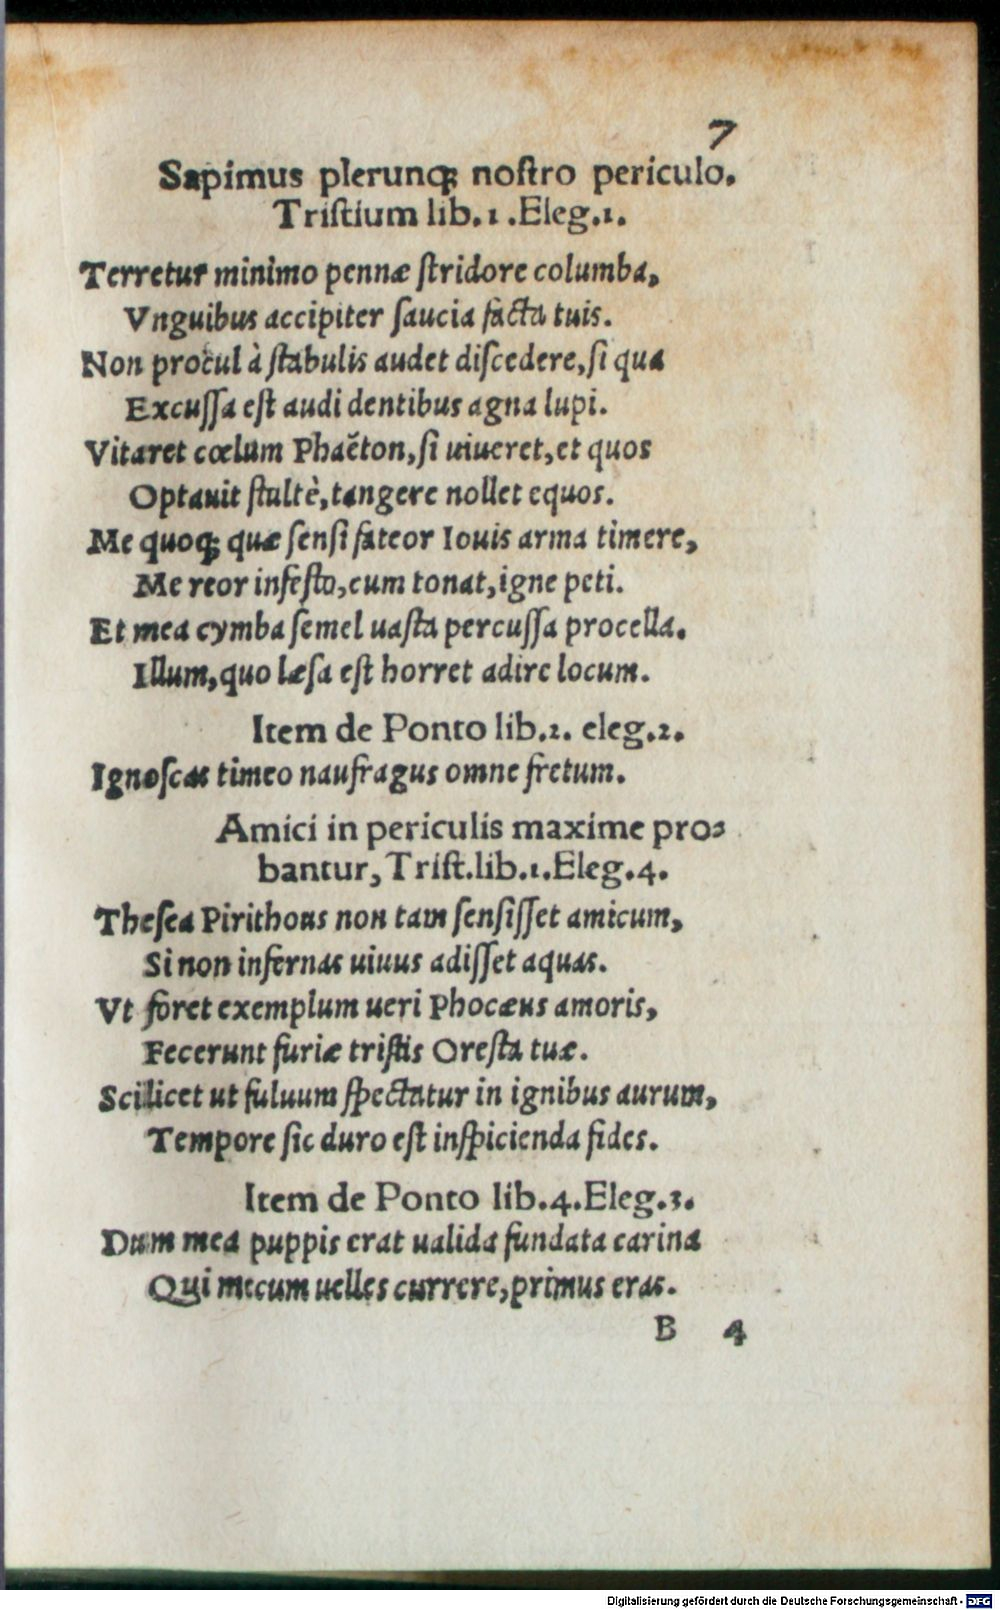 7
Sapimus plerunq; noſtro periculo.
Triſtium lib.1.Eleg.1.
Terretur minimo pennæ ſtridore columba,
Vnguibus accipiter ſaucia facta tuis.
Non procul à ſtabulis audet diſcedere, ſi qua
Excuſſa eſt audi dentibus agna lupi.
Vitaret cœlum Phaëton, ſi uiueret, et quos
Optauit ſtultè, tangere nollet equos.
Me quoq; quæ ſenſi fateor Iouis arma timere,
Me reor infeſto, cum tonat, igne peti.
Et mea cymba ſemel uaſta percuſſa procella.
Illum, quo læſa eſt horret adire locum.
Item de Ponto lib.2. eleg.2.
Ignoſcas timeo naufragus omne fretum.
Amici in periculis maxime pro⸗
bantur, Triſt.lib.1.Eleg.4.
Theſea Pirithous non tam ſenſiſſet amicum,
Si non infernas uiuus adiſſet aquas.
Vt foret exemplum ueri Phocæus amoris,
Fecerunt furiæ triſtis Oreſta tuæ.
Scilicet ut fuluum ſpectatur in ignibus aurum,
Tempore ſic duro eſt inſpicienda fides.
Item de Ponto lib.4.Eleg.3.
Dum mea puppis erat ualida fundata carina
Qui mecum uelles currere, primus eras.
B 4
Digitalisierung gefördert durch die Deutsche Forschungsgemeinschaft - DFG